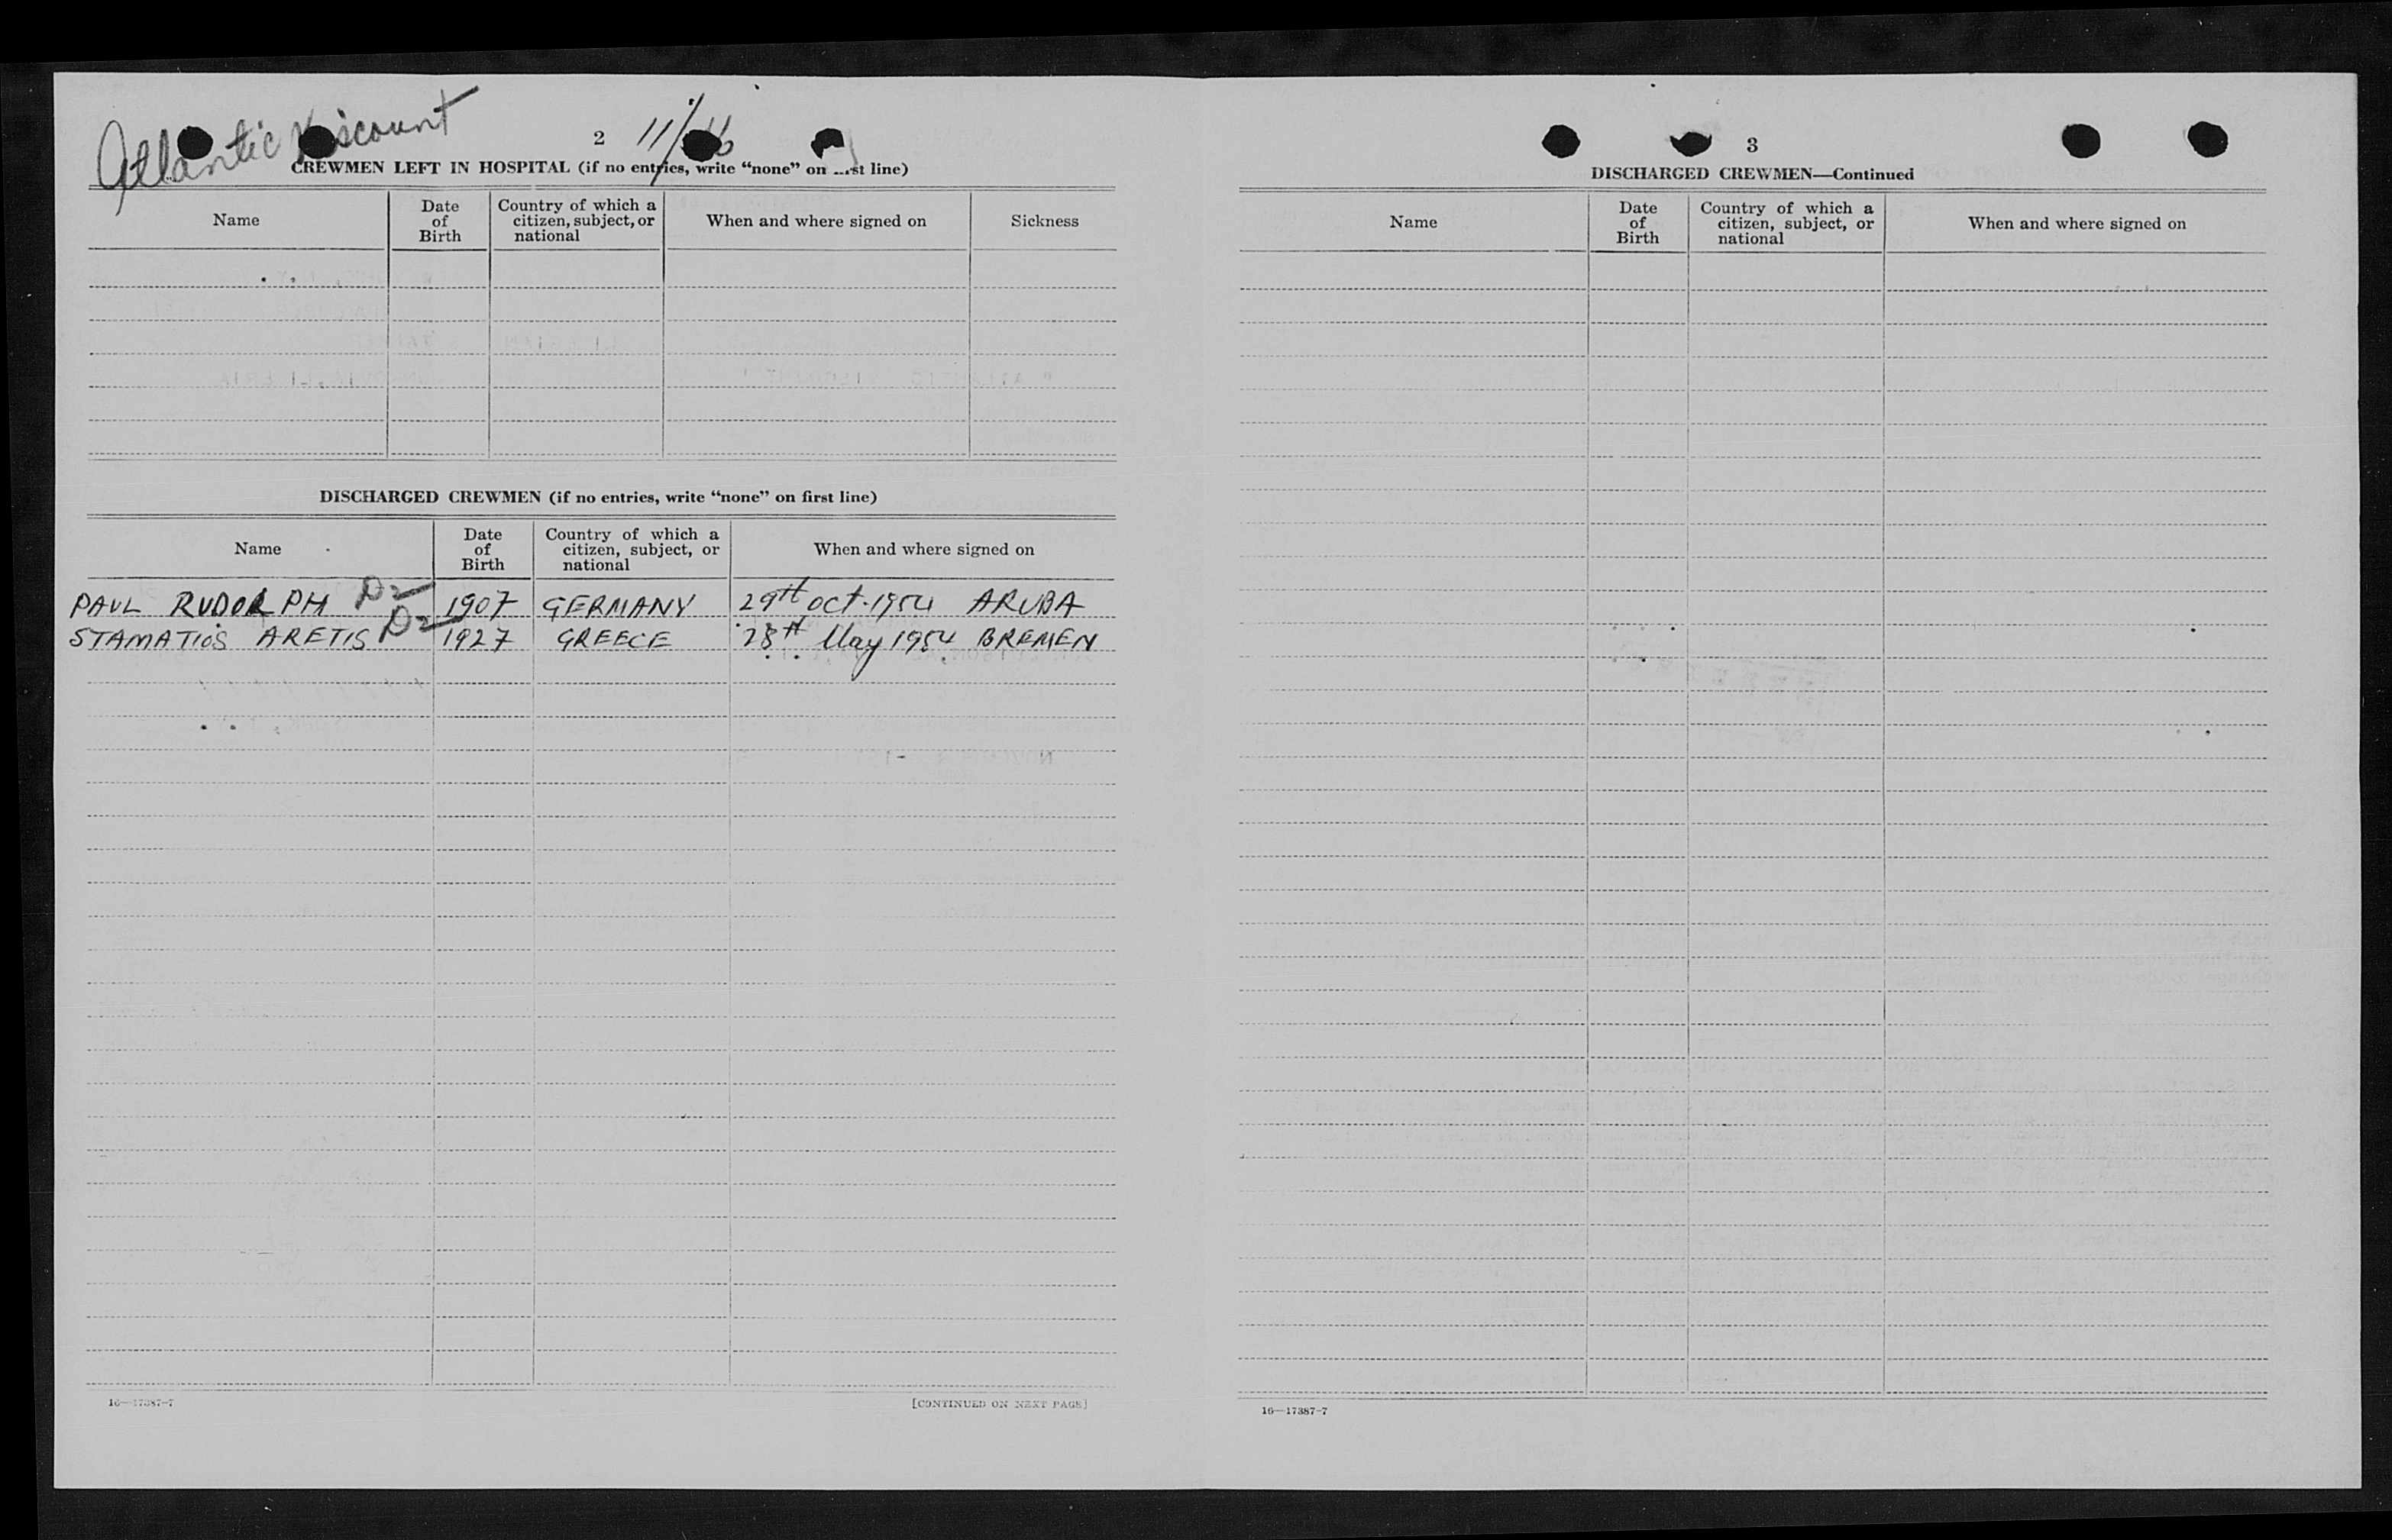 Atlantic Viscount
2
CREWMEN LEFT IN HOSPITAL (if no entries, write “none” on line)
Name
Date of Birth
Country of which a citizen, subject, or national
When and where signed on
Sickness
DISCHARGED CREWMEN (if no entries, write “none” on first line)
Name
Date of Birth
Country of which a citizen, subject, or national
When and where signed on
PAUL RUDOLPH 1907 GERMANY 29th Oct. 1954 ARUBA
STAMATIOS ARETIS 1927 GREECE 28th May 1954 BREMEN
16—17387-7
[CONTINUED ON NEXT PAGE]
3
DISCHARGED CREWMEN—Continued
Name
Date of Birth
Country of which a citizen, subject, or national
When and where signed on
16—17387-7